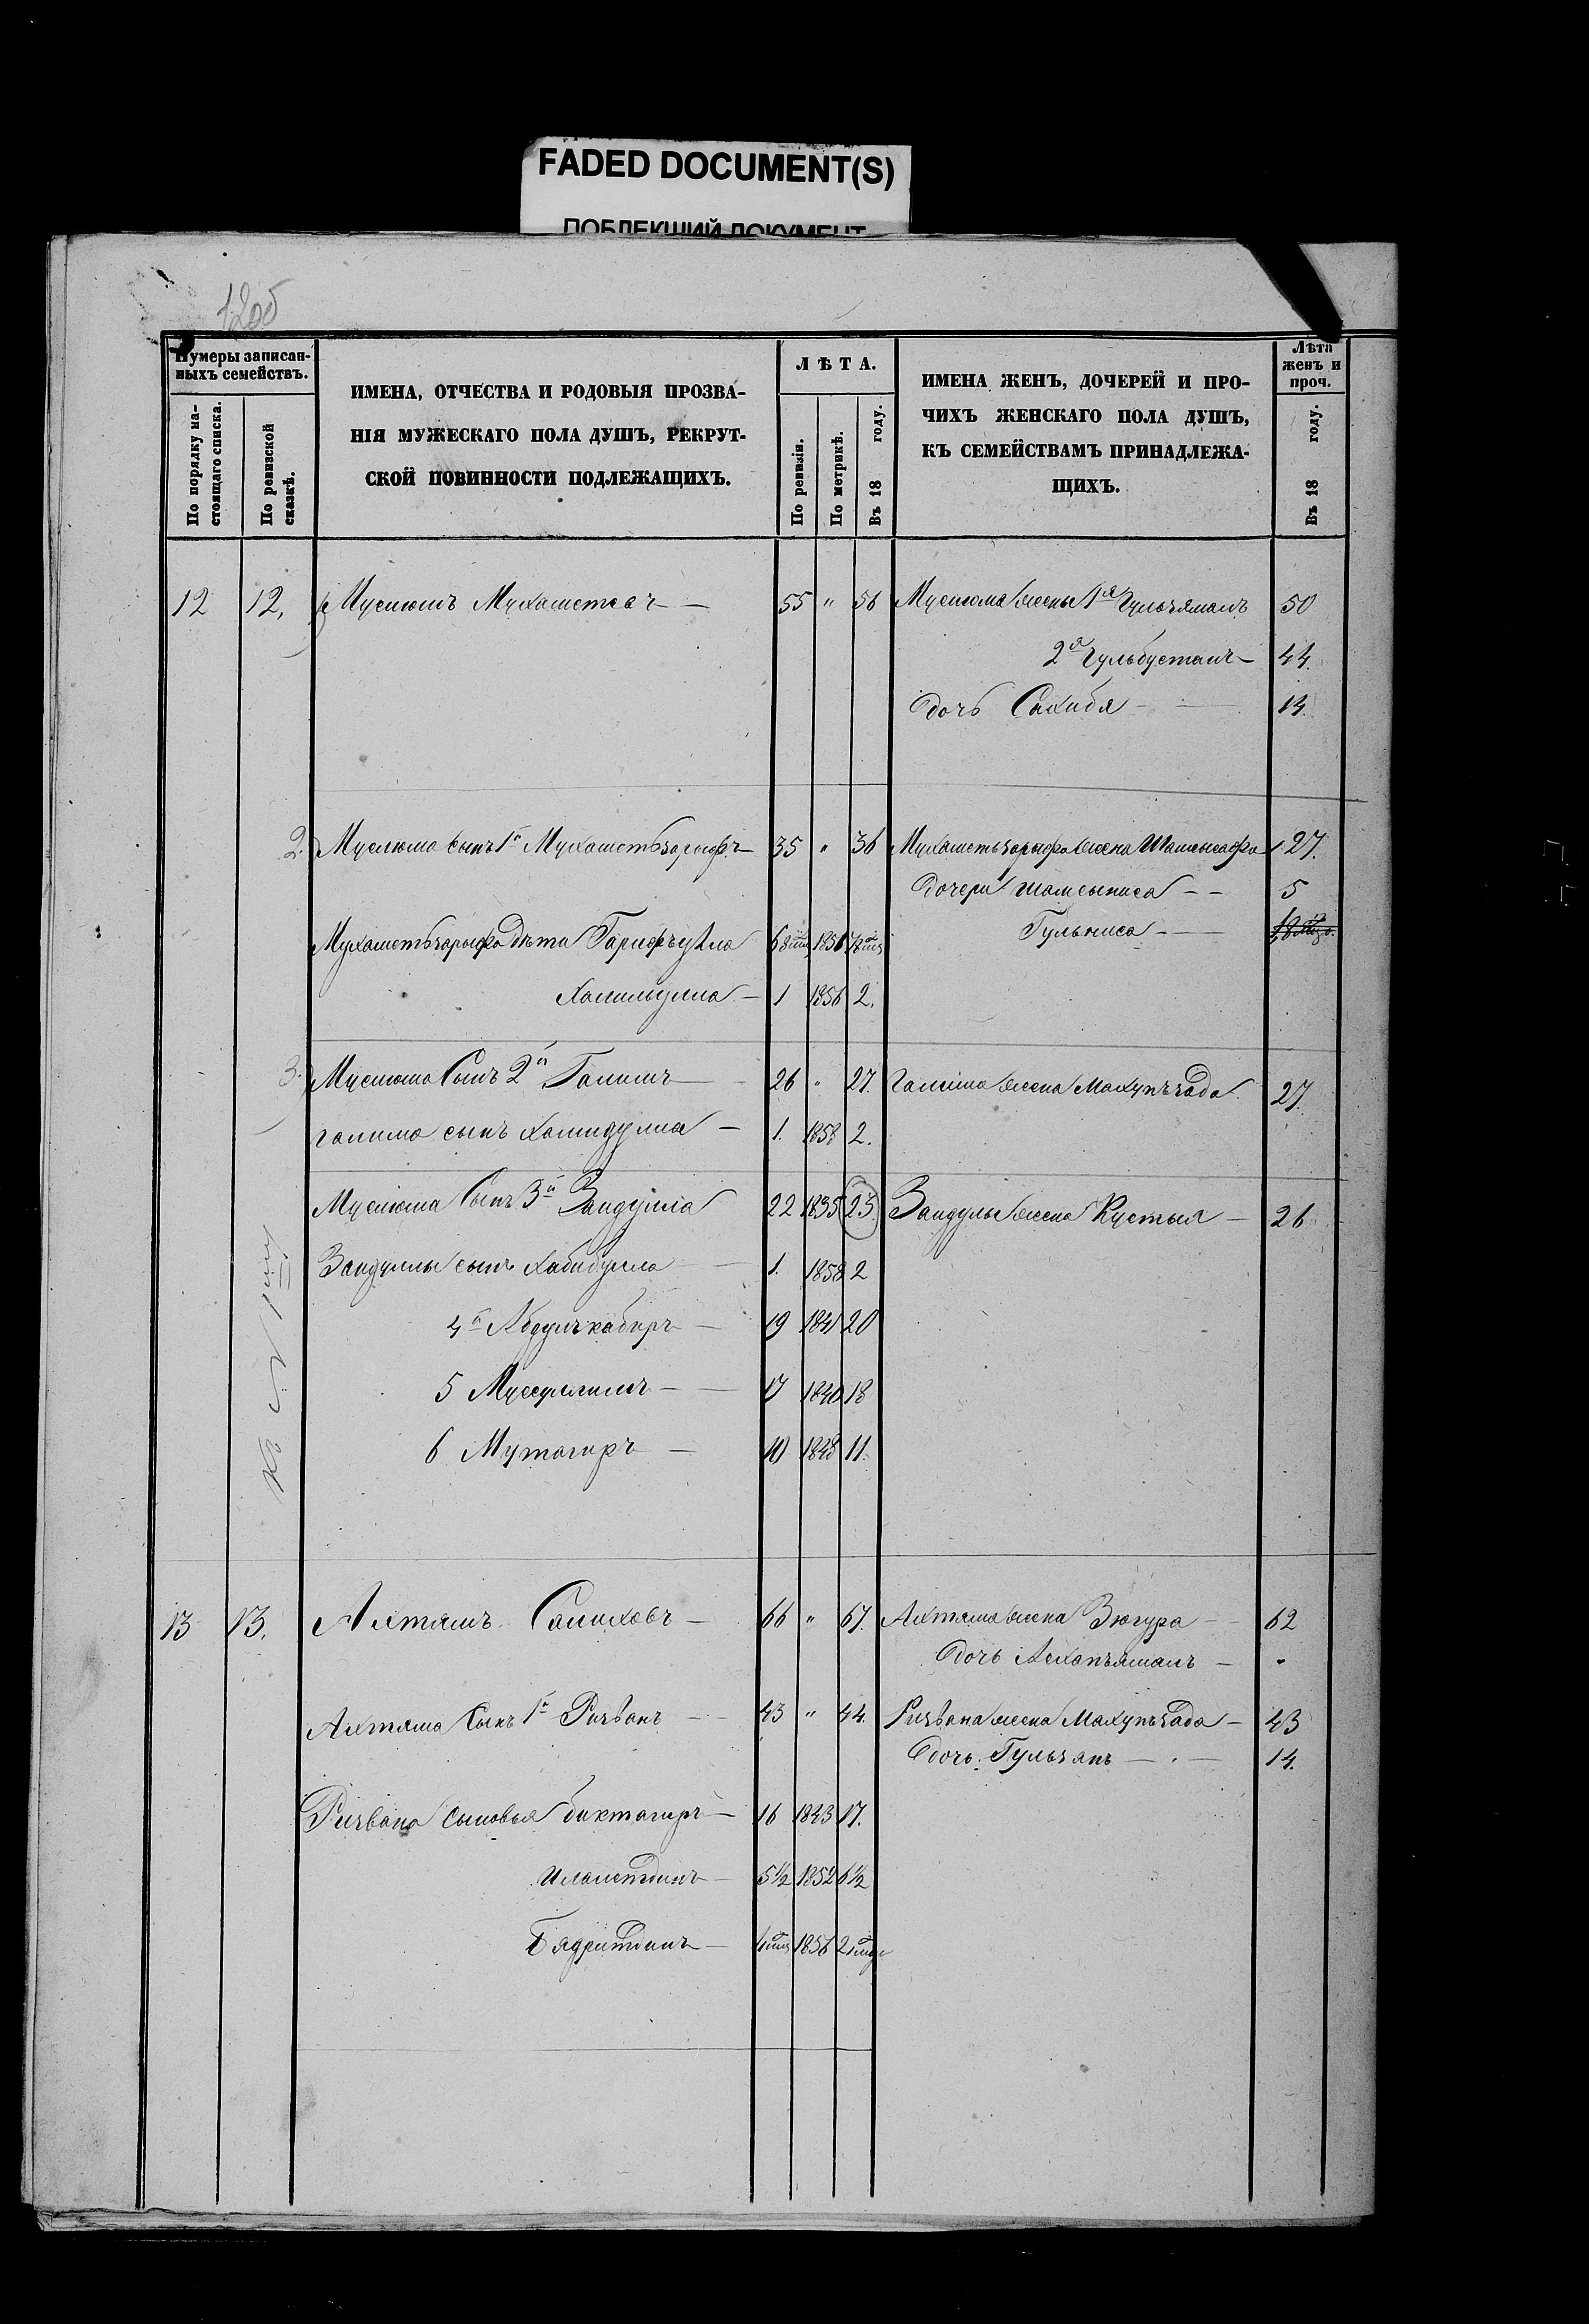 FADED DOCUMENT(S)
ПОБЛЕКШИЙ ДОКУМЕНТ
12об
Нумеры записан-
ныхъ семействъ.
По порядку на-
стоящаго списка.
По ревизской
сказкѣ.
ИМЕНА, ОТЧЕСТВА И РОДОВЫЯ ПРОЗВА-
НІЯ МУЖЕСКАГО ПОЛА ДУШЪ, РЕКРУТ-
СКОЙ ПОВИННОСТИ ПОДЛЕЖАЩИХЪ.
ЛѢТА.
По ревизіи.
По метрикѣ.
Въ 18 году.
ИМЕНА ЖЕНЪ, ДОЧЕРЕЙ И ПРО-
ЧИХЪ ЖЕНСКАГО ПОЛА ДУШЪ,
КЪ СЕМЕЙСТВАМЪ ПРИНАДЛЕЖА-
ЩИХЪ.
Лѣта
женъ и
проч.
Въ 18 году.
12 12, Муслюмъ Мухаметевъ — 55 " 56 Муслюма жены 1я Гульчямалъ 50
2я Гульбустанъ — 44.
дочь Сахибя — 14.
2. Муслюма сынъ 1й Мухаметьзарифъ 35 " 36 Мухаметьзарифа жена Шамсисафа 27.
дочери Шамсиниса — 5
Мухаметьзарифа дѣти Гарифъулла 1856 Гульниса —
Халильулла — 1 1856 2.
3. Муслюма Сынъ 2й Галимъ 26 " 27. Галима жена Махупъзада 27.
Галима сынъ Хамидулла — 1. 1858 2.
Муслюма Сынъ 3й Заидулла 22 1835 23. Заидулы жена Кустыя — 26
Заидуллы сынъ Хабибулла 1. 1858 2
4й Абдулкабиръ — 19 1841 20
5 Муссулимъ — 17 1840 18
6 Мутагиръ — 10 1848 11.
13 13. Ахтямъ Салиховъ — 66 " 67. Ахтяма жена Зюгура 62
дочь Асхапъямалъ — "
Ахтяма Сынъ 1й Ризванъ — 43 " 44. Ризвана жена Махупъзада — 43
дочь Гульзянъ — 14.
Ризвана сыновья Биктагиръ — 16 1843 17.
Иламетдинъ — 5½ 1852 6½
Бядритдинъ — 1856